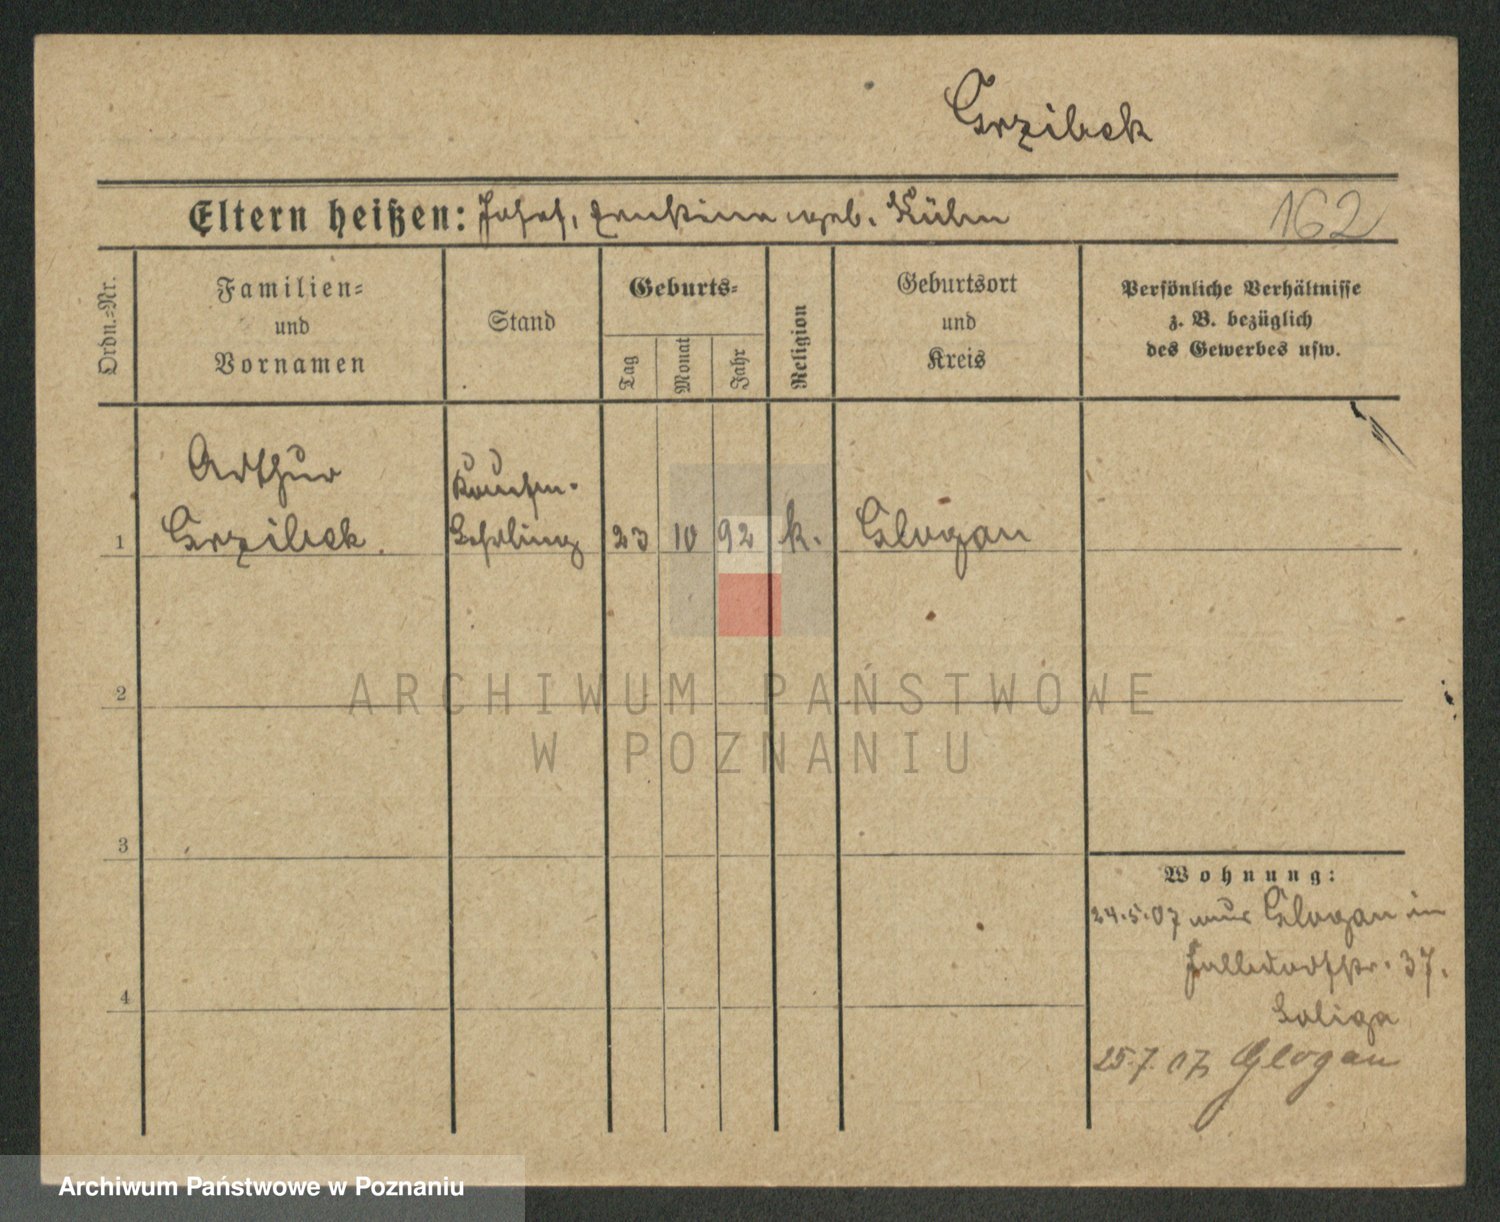 Grzibek
Eltern heißen: Josef, geb. Kühn
162
Ordn.-Nr.
Familien-
und
Vornamen
Stand
Geburts-
Tag
Monat
Jahr
Religion
Geburtsort
und
Kreis
Persönliche Verhältnisse
z. B. bezüglich
des Gewerbes usw.
Arthur
Kaufm.
1 Grzibek. Lehrling 23 10 92 k. Glogau
2
ARCHIWUM PAŃSTWOWE
W POZNANIU
3
Wohnung:
24.5.07 aus Glogau in
37.
4
25.7.07 Glogau
Archiwum Państwowe w Poznaniu